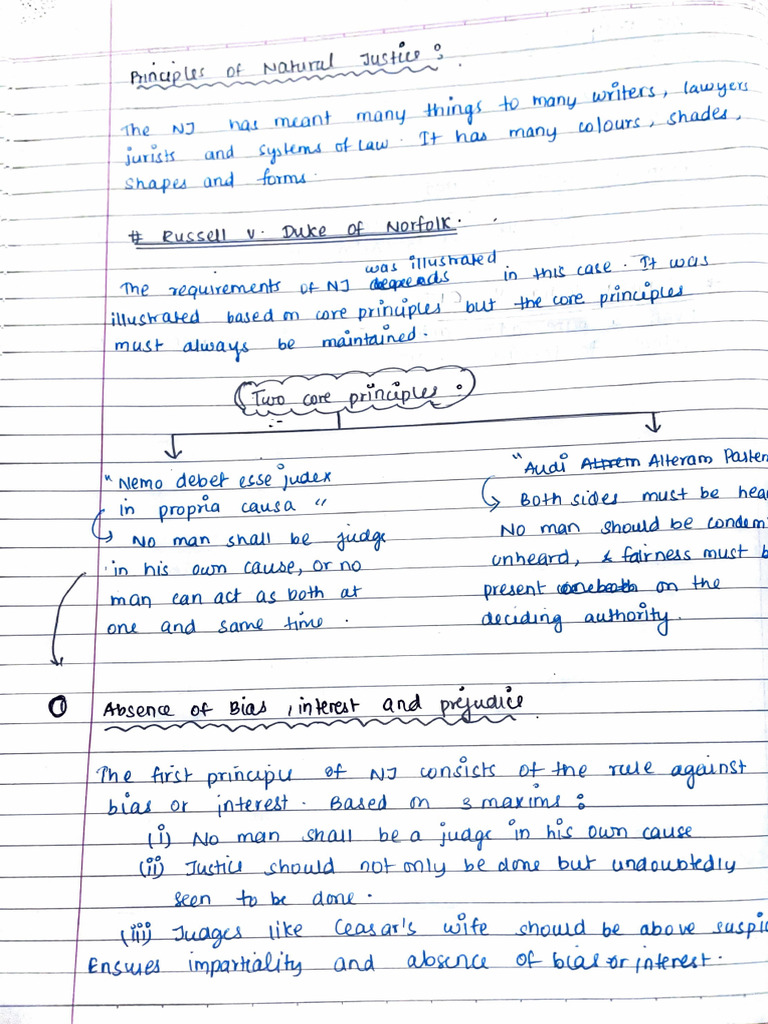 Principles of Natural Justice :
The NJ has meant many things to many writers, lawyers
jurists and systems of law. It has many colours, shades,
shapes and forms.
# Russell v. Duke of Norfolk.
was illustrated
The requirements of NJ depends in this case. It was
illustrated based on core principles but the core principles
must always be maintained.
Two core principles :
:-
"Nemo debet esse judex
in propria causa "
No man shall be judge
in his own cause, or no
man can act as both at
one and same time .
"Audi Altrem Alteram Partem
Both sides must be hea
No man should be condem
unheard, & fairness must b
present on the
deciding authority.
1 Absence of Bias , interest and prejudice
The first principle of NJ consists of the rule against
bias or interest. Based on 3 maxims :
(i) No man shall be a judge in his own cause
(ii) Justice should not only be done but undoubtedly
seen to be done.
(iii) Judges like Ceasar's wife should be above suspic
Ensures impartiality and absence of bias or interest.